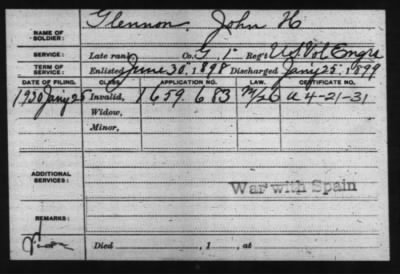 NAME OF SOLDIER: Glennon, John H
SERVICE: Late rank, Co. G, 1" Reg't U.S. Vol Engrs
TERM OF SERVICE: Enlisted June 30, 1898 Discharged Jany 25, 1899
DATE OF FILING. CLASS. APPLICATION NO. LAW. CERTIFICATE NO.
1930 Jany 25 Invalid, 1659.683 A 4-21-31
Widow,
Minor,
ADDITIONAL SERVICES:
War with Spain
REMARKS:
Died , 1 , at